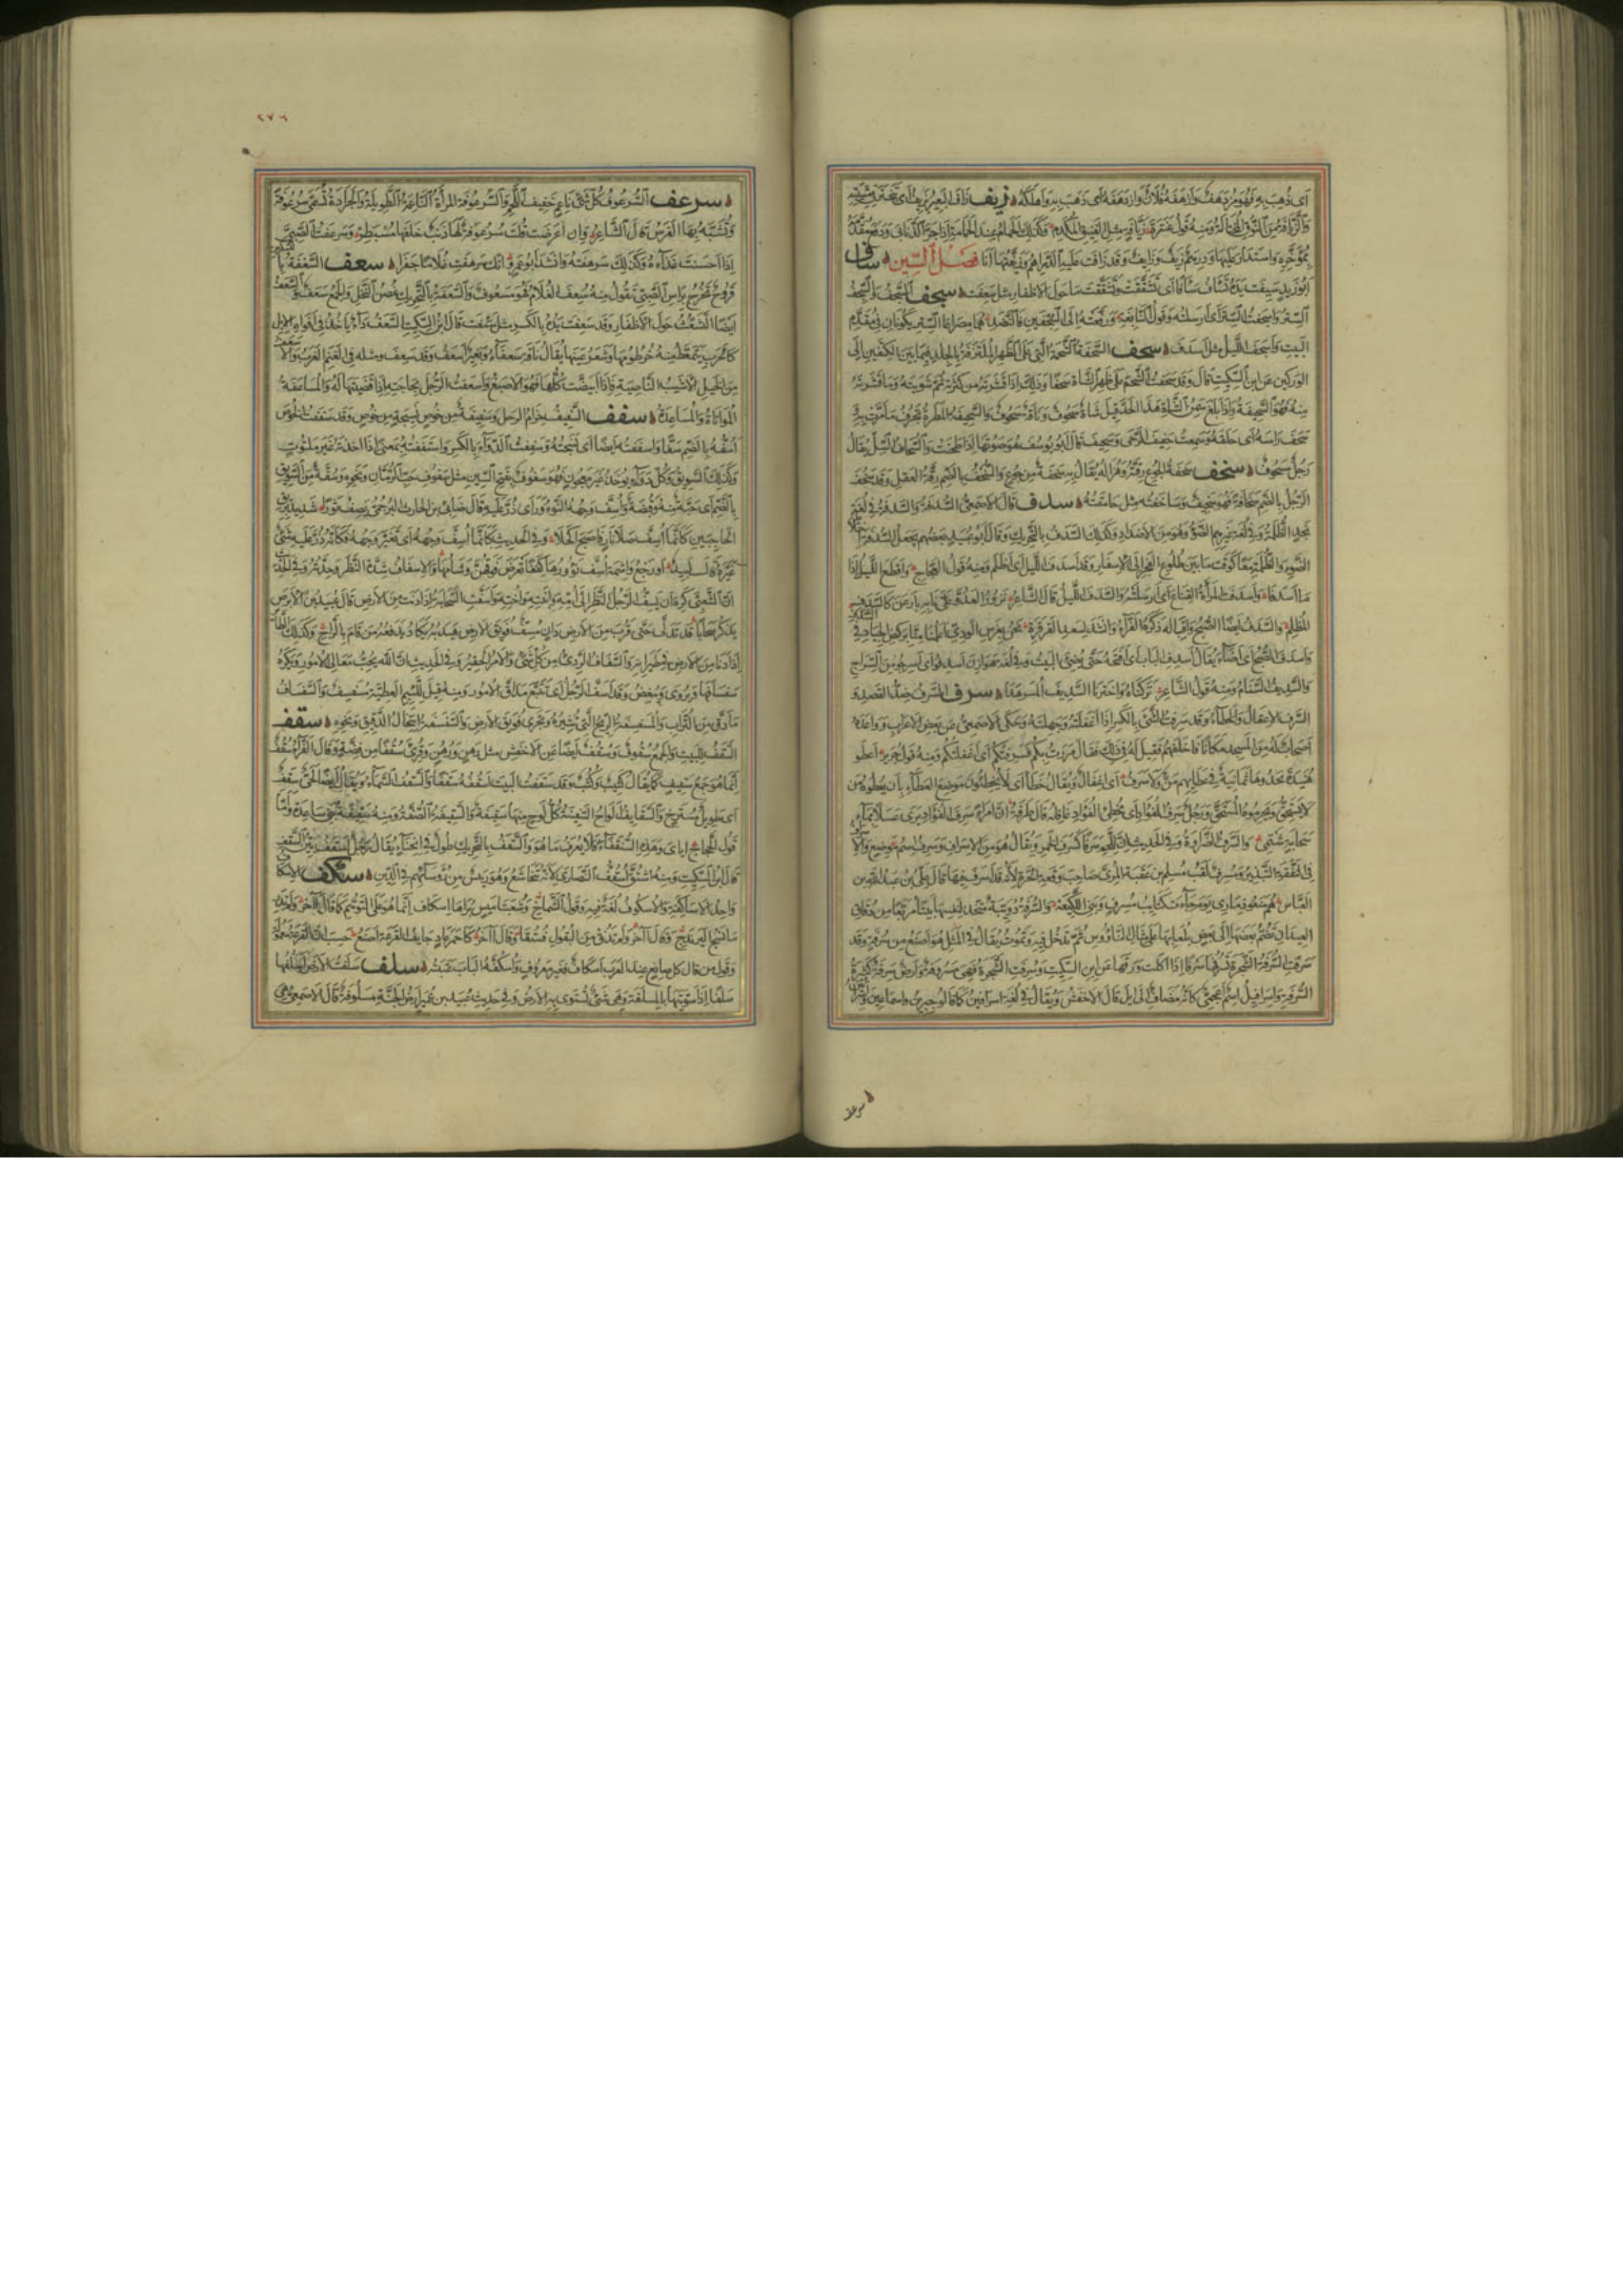 اى ذهب به فهو مزدهف وازدهفه فلان وازدهفه اى ذهب به واهلكه زيف زاف البعير يزيف اى تبختر فى مشيته
والزيافة من النوق المختالة ومنه قول عنترة زيافة مثل الفنيق المكدم وكذلك الحمام عند الحمامة اذا جر الذنابى ودفع مقدمه
بمؤخره واستدار عليها ودرهم زيف وزايف وقد زافت عليه الدراهم وزيفتها انا فصل السين ساف
ابو زيد سئفت يده تساف سافا اى تشققت وتشققت ما حول الاظفار مثل سعفت سجف السجف والسجف
الستر واسجفت الستر اى ارسلته وقول النابغة ورفعته الى السجفين فالنضد هما مصراعا الستر يكونان فى مقدم
البيت واسجف الليل مثل اسدف سحف السحفة الشحمة التى على الظهر الملتزقة بالجلد فيما بين الكتفين الى
الوركين عن ابن السكيت قال وقد سحفت الشحم على ظهر الشاة سحفا وذلك اذا قشرته من كثرته ثم شويته وما قشرته
منه فهو السحيفة واذا بلغ سمن الشاة هذا الحد قيل شاة سحوف وناقة سحوف والسحيفة المطرة تجرف ما مرت به
سحف راسه اى حلقه وسمعت حفيف الرحى وسحيف قال ابو يوسف هو صوتها اذا طحنت والسحاف السل يقال
رجل مسحوف سخف سخفة الجوع رقته وهزاله يقال به سخفة من جوع والسخف بالضم رقة العقل وقد سخف
الرجل بالضم سخافة فهو سخيف وساخفته مثل حامقته سدف قال الاصمعى السدفة والسدفة فى لغة
نجد الظلمة وفى لغة غيرهم الضوء وهو من الاضداد وكذلك السدف بالتحريك وقال ابو عبيد بعضهم يجعل السدفة اختلاط
الضوء والظلمة معا كوقت ما بين طلوع الفجر الى الاسفار وقد اسدف الليل اى اظلم ومنه قول العجاج واقطع الليل اذا
ما اسدفا واسدفت المراة القناع اى ارسلته والسدف الليل قال الشاعر
المظلم والسدف ايضا الصبح واقباله ذكره الفراء وانشد لسعد القرقرة نحن بغرس الودى اعلمنا منا بركض الجياد فى السدف
واسدف الصبح اى اضاء يقال اسدف الباب اى افتحه حتى يضئ البيت وفى لغة هوازن اسدفوا اى اسرجوا من السراج
والسديف السنام ومنه قول الشاعر سرف السرف ضد القصد و
السرف الاغفال والخطاء وقد سرفت الشئ بالكسر اذا اغفلته وجهلته وحكى الاصمعى عن بعض الاعراب وواعده
اصحاب له من المسجد مكانا فاخلفهم فقيل له فى ذلك فقال مررت بكم فسرفتكم اى اغفلتكم ومنه قول جرير اعطوا
هنيدة يحدوها ثمانية ما فى عطائهم من ولا سرف اى اغفال ويقال خطاء اى لا يخطئون موضع العطاء بان يعطوه من
لا يستحق ويحرموه المستحق ورجل سرف الفؤاد اى مخطئ الفؤاد غافله قال طرفة ان امرأ سرف الفؤاد يرى عسلا بماء
سحابة شتمى والسرف الضراوة وفى الحديث ان للحم سرفا كسرف الخمر ويقال هو من الاسراف وسرف اسم موضع والاسراف
فى النفقة التبذير ومسرف لقب مسلم بن عقبة المرى صاحب وقعة الحرة لانه قد اسرف فيها قال على بن عبد الله بن
العباس هم منعوا ذمارى يوم جاءت كتائب مسرف وبنى اللكيعة والسرفة دويبة تتخذ لنفسها بيتا مربعا من دقاق
العيدان تضم بعضها الى بعض بلعابها على مثال الناووس ثم تدخل فيه وتموت يقال فى المثل هو اصنع من سرفة وقد
سرفت السرفة الشجرة تسرفها سرفا اذا اكلت ورقها عن ابن السكيت وسرفت الشجرة فهى مسروفة وارض سرفة كثيرة
السرفة واسرافيل اسم اعجمى كانه مضاف الى ايل قال الاخفش ويقال فى لغة اسرافين كما قالوا جبرين واسماعين واسرائين
سرعف
٢٧٦
سرعف السرعوف كل شئ ناعم خفيف اللحم والسرعوفة المراة الناعمة الطويلة والجرادة تسمى سرعوفة
وتشبه بها الفرس قال الشاعر وان اعرضت قلت سرعوفة لها ذنب خلفها مسبطر وسرعفت الصبى
اذا احسنت غذاءه وكذلك سرهفته وانشد ابو عمرو انك سرهفت غلاما جفرا سعف السعفة بالتسكين
قروح تخرج براس الصبى تقول منه سعف الغلام فهو مسعوف والسعفة بالتحريك غصن النخل والجمع سعف والسعف
ايضا التشعث حول الاظفار وقد سعفت يده بالكسر مثل سئفت قال ابن السكيت السعف داء ياخذ فى افواه الابل
كالجرب يتمعط منه خرطومها وشعر عينها يقال ناقة سعفاء وبعير اسعف وقد سعف ومثله فى الغنم الغرب والاسعف
من الخيل الاشيب الناصية فاذا ابيضت كلها فهو الاصبغ واسعفت الرجل بحاجته اذا قضيتها له والمساعفة
المواتاة والمساعدة سفف السفيف حزام الرحل وسفيفة من خوص نسيجة من خوص وقد سففت الخوص
اسفه بالضم سفا واسففته ايضا اى نسجته وسففت الدواء بالكسر واستففته بمعنى اذا اخذته غير ملتوت
وكذلك السويق وكل دواء يوخذ غير معجون فهو سفوف بفتح السين مثل سفوف حب الرمان ونحوه وسفة من السويق
بالضم اى حبة منه وقبضة واسف وجهه النؤور اى ذر عليه قال ضابئ بن الحارث البرجمى يصف ثورا شديد بريق
الحاجبين كانما اسف صلا نار فاصبح اكحلا وفى الحديث كانما اسف وجهه اى تغير وجهه فكانه ذر عليه شئ
غيره قال لبيد او رجع واشمة اسف نؤورها كففا تعرض فوقهن وشامها والاسفاف شدة النظر وحدته وفى الحديث
ان الشعبى كره ان يسف الرجل النظر الى امه وابنته واخته واسفت السحابة اذا دنت من الارض قال عبيد بن الابرص
يذكر سحابا قد تدلى حتى قرب من الارض دان مسف فويق الارض هيدبه يكاد يدفعه من قام بالراح وكذلك الطائر
اذا دنا من الارض فى طيرانه والسفساف الردى من كل شئ والامر الحقير وفى الحديث ان الله يحب معالى الامور ويكره
سفسافها ويروى ويبغض وقد اسف الرجل اى تتبع مداق الامور ومنه قيل للئيم العطية مسفسف والسفساف
ما دق من التراب والمسفسفة الريح التى تثيره وتجرى فويق الارض والسفسفة انتخال الدقيق ونحوه سقف
السقف للبيت والجمع سقوف وسقف ايضا عن الاخفش مثل رهن ورهن وقرئ سقفا من فضة وقال الفراء سقف
انما هو جمع سقيف كما يقال كثيب وكثب وقد سقفت البيت اسقفه سقفا والسقف السماء ويقال ايضا لحى سقف
اى طويل مسترخ والسقايف الواح السفينة كل لوح منها سقيفة والسقيفة الصفة ومنه سقيفة بنى ساعدة واما
قول الحجاج اياى وهذه السقفاء فلا يعرف ما هو والسقف بالتحريك طول فى انحناء يقال رجل اسقف بين السقف
قال ابن السكيت ومنه اشتق اسقف النصارى لانه يتخاشع وهو رئيس من رؤسائهم فى الدين سكف الاسكاف
واحد الاساكفة والاسكوف لغة فيه وقول الشماخ وشعبتا ميس براها اسكاف انما هو على التوهم كما قال الآخر
وقال آخر ولم تذق من البقول فستقا وقال آخر جايف القرعة اصنع حسب ان القرعة معمولة
وقول من قال كل صانع عند العرب اسكاف فغير معروف واسكفة الباب عتبته سلف سلفت الارض اسلفها
سلفا اذا سويتها بالمسلفة وهى شئ تسوى به الارض وفى حديث عبيد بن عمير ارض الجنة مسلوفة قال الاصمعى هى